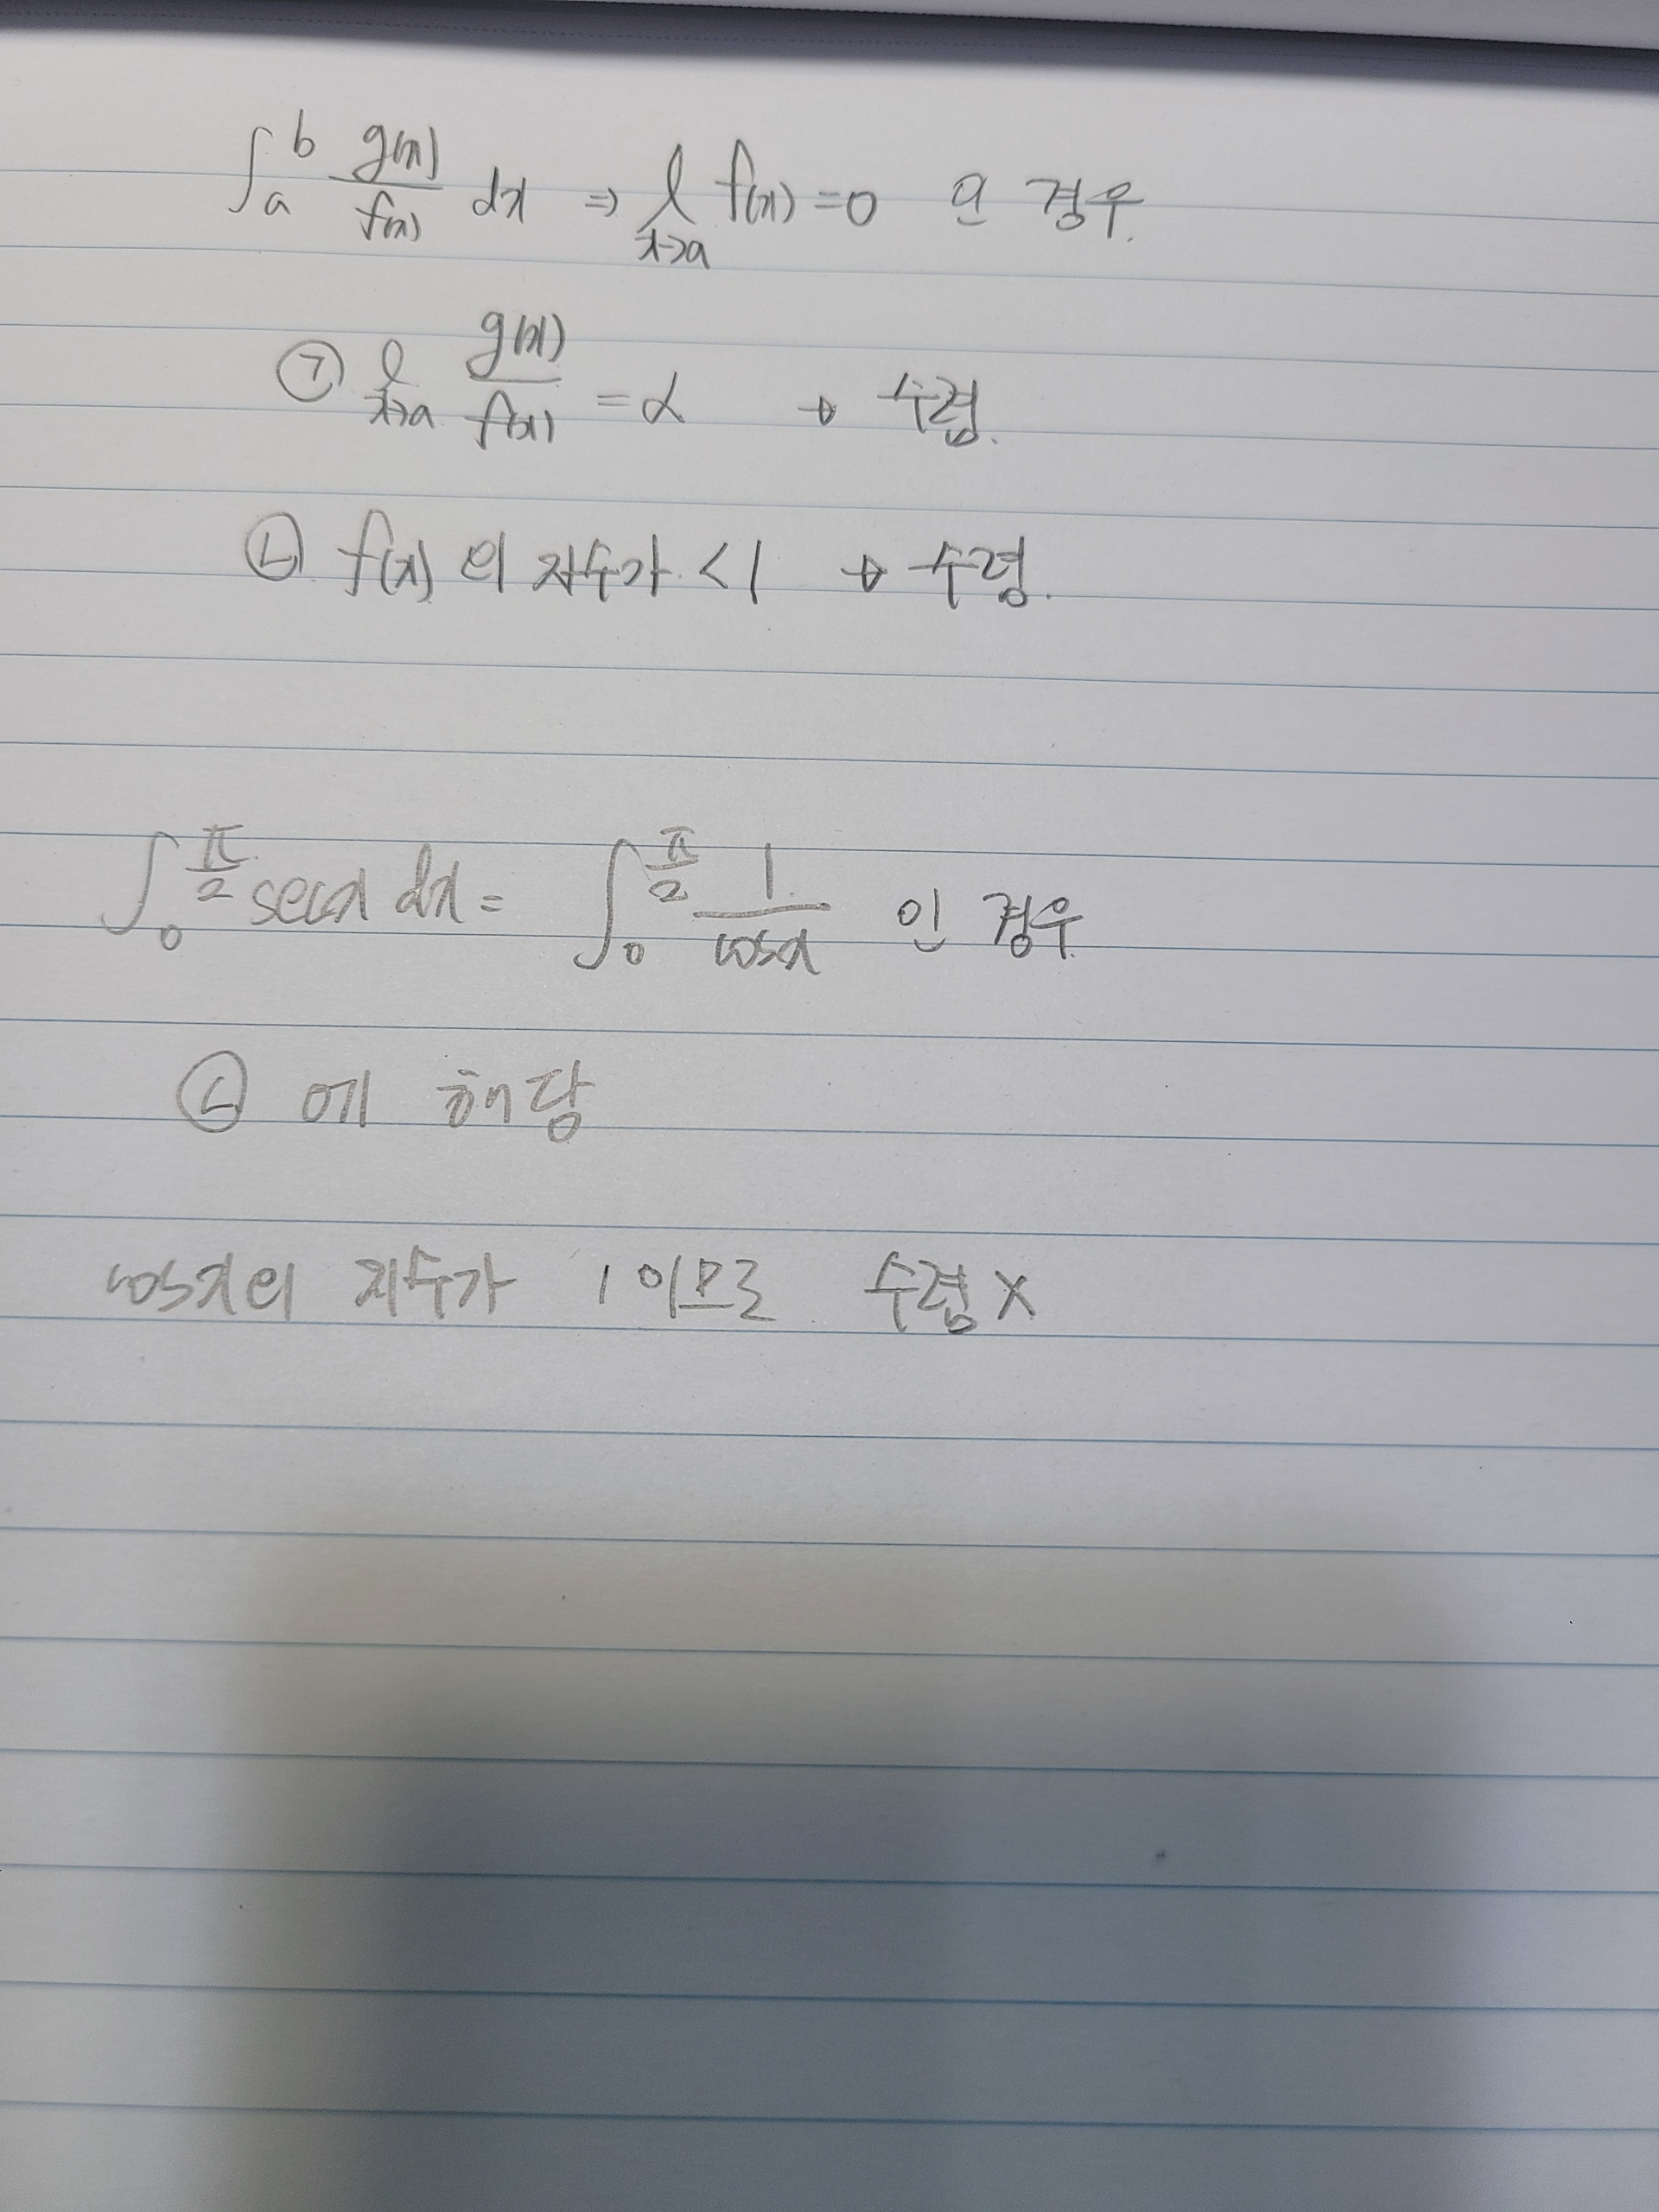 ∫_a^b g(x)/f(x) dx ⇒ l_{x→a} f(x) = 0 인 경우.
㉠ l_{x→a} g(x)/f(x) = α → 수렴.
㉡ f(x)의 지수가 < 1 → 수렴.
∫_0^{π/2} secx dx = ∫_0^{π/2} 1/cosx 인 경우
㉡ 에 해당
cosx의 지수가 1이므로 수렴 X